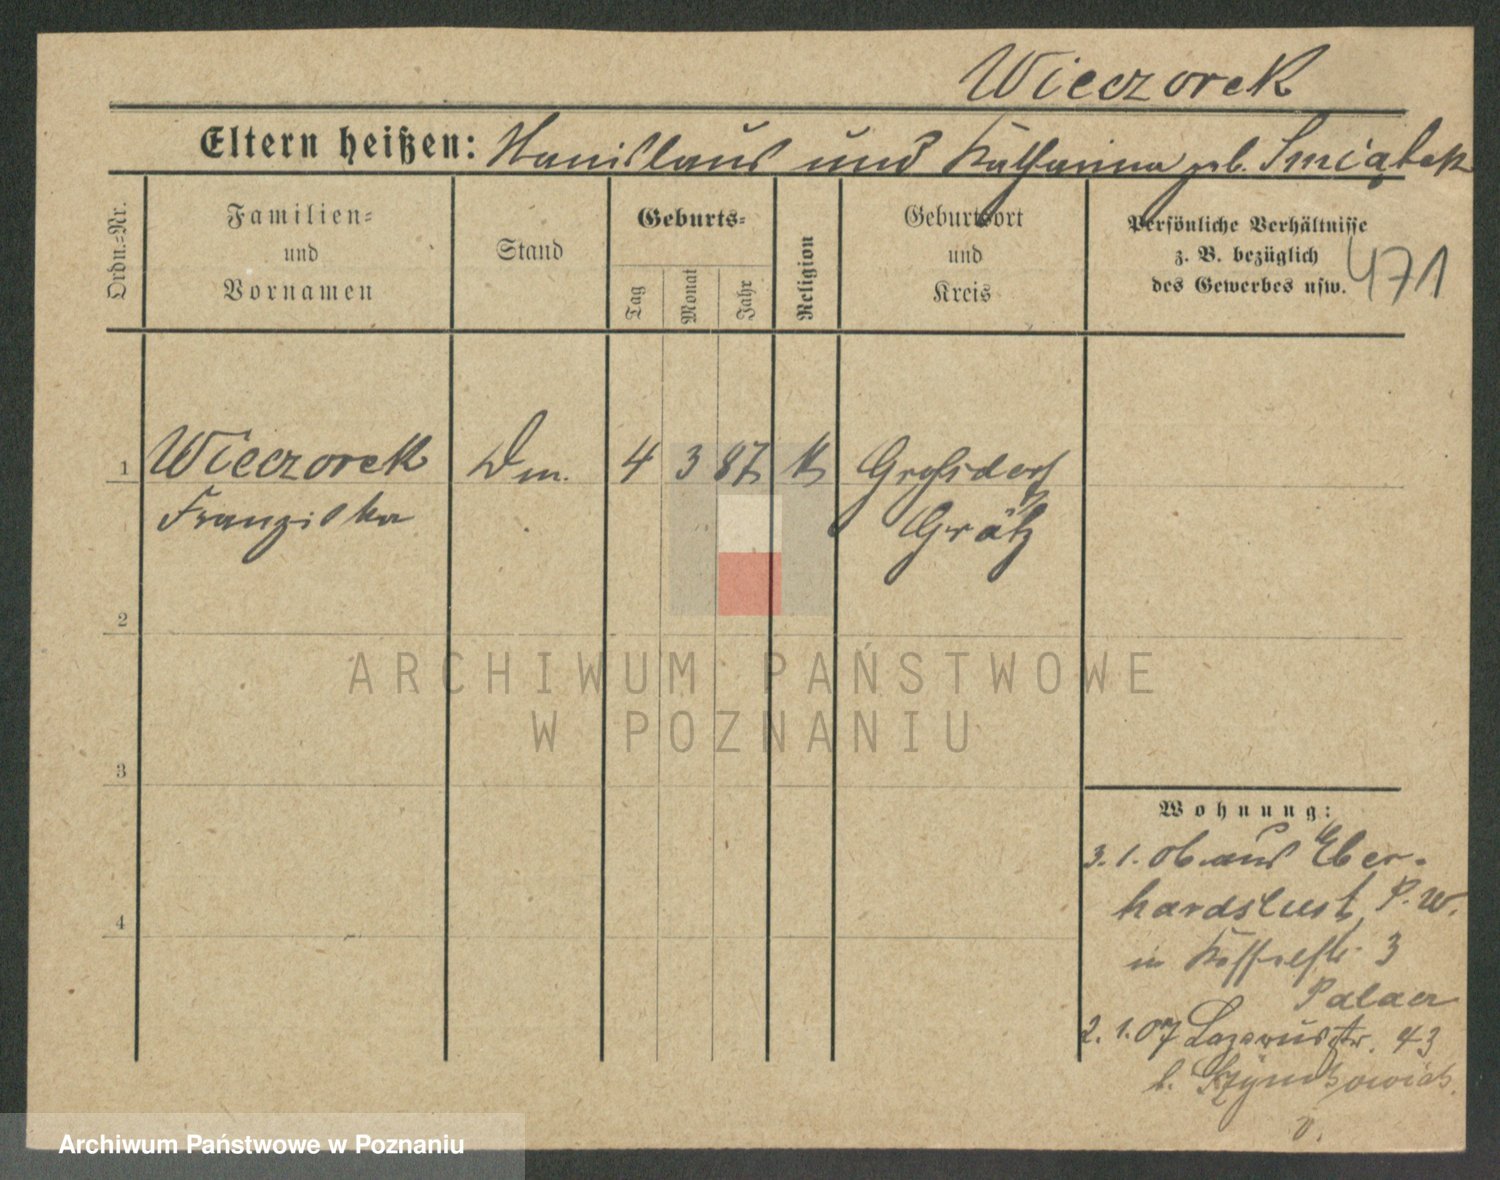 Wieczorek
Eltern heißen: Stanislaus und Katharina geb. Smiątek
Ordn.=Nr.
Familien=
und
Vornamen
Stand
Geburts=
Tag
Monat
Jahr
Religion
Geburtsort
und
Kreis
Persönliche Verhältnisse
z. B. bezüglich
des Gewerbes usw.
471
1 Wieczorek Dm. 4 3 87 K Großdorf
Franziska Grätz
2
3
4
Wohnung:
3.1.06 aus Eber-
hardslust, P. W.
in 3
2.1.07 Lazarusstr. 43
b.
v.
ARCHIWUM PAŃSTWOWE
W POZNANIU
Archiwum Państwowe w Poznaniu